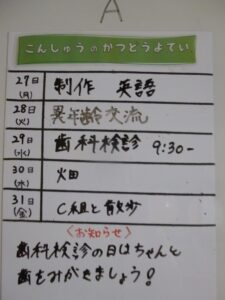 A
こんしゅうのかつどうよてい
27日(月) 制作 英語
28日(火) 異年齢交流
29日(水) 歯科検診 9:30-
30日(木) 畑
31日(金) C組と散歩
<お知らせ>
歯科検診の日はちゃんと
歯をみがきましょう!